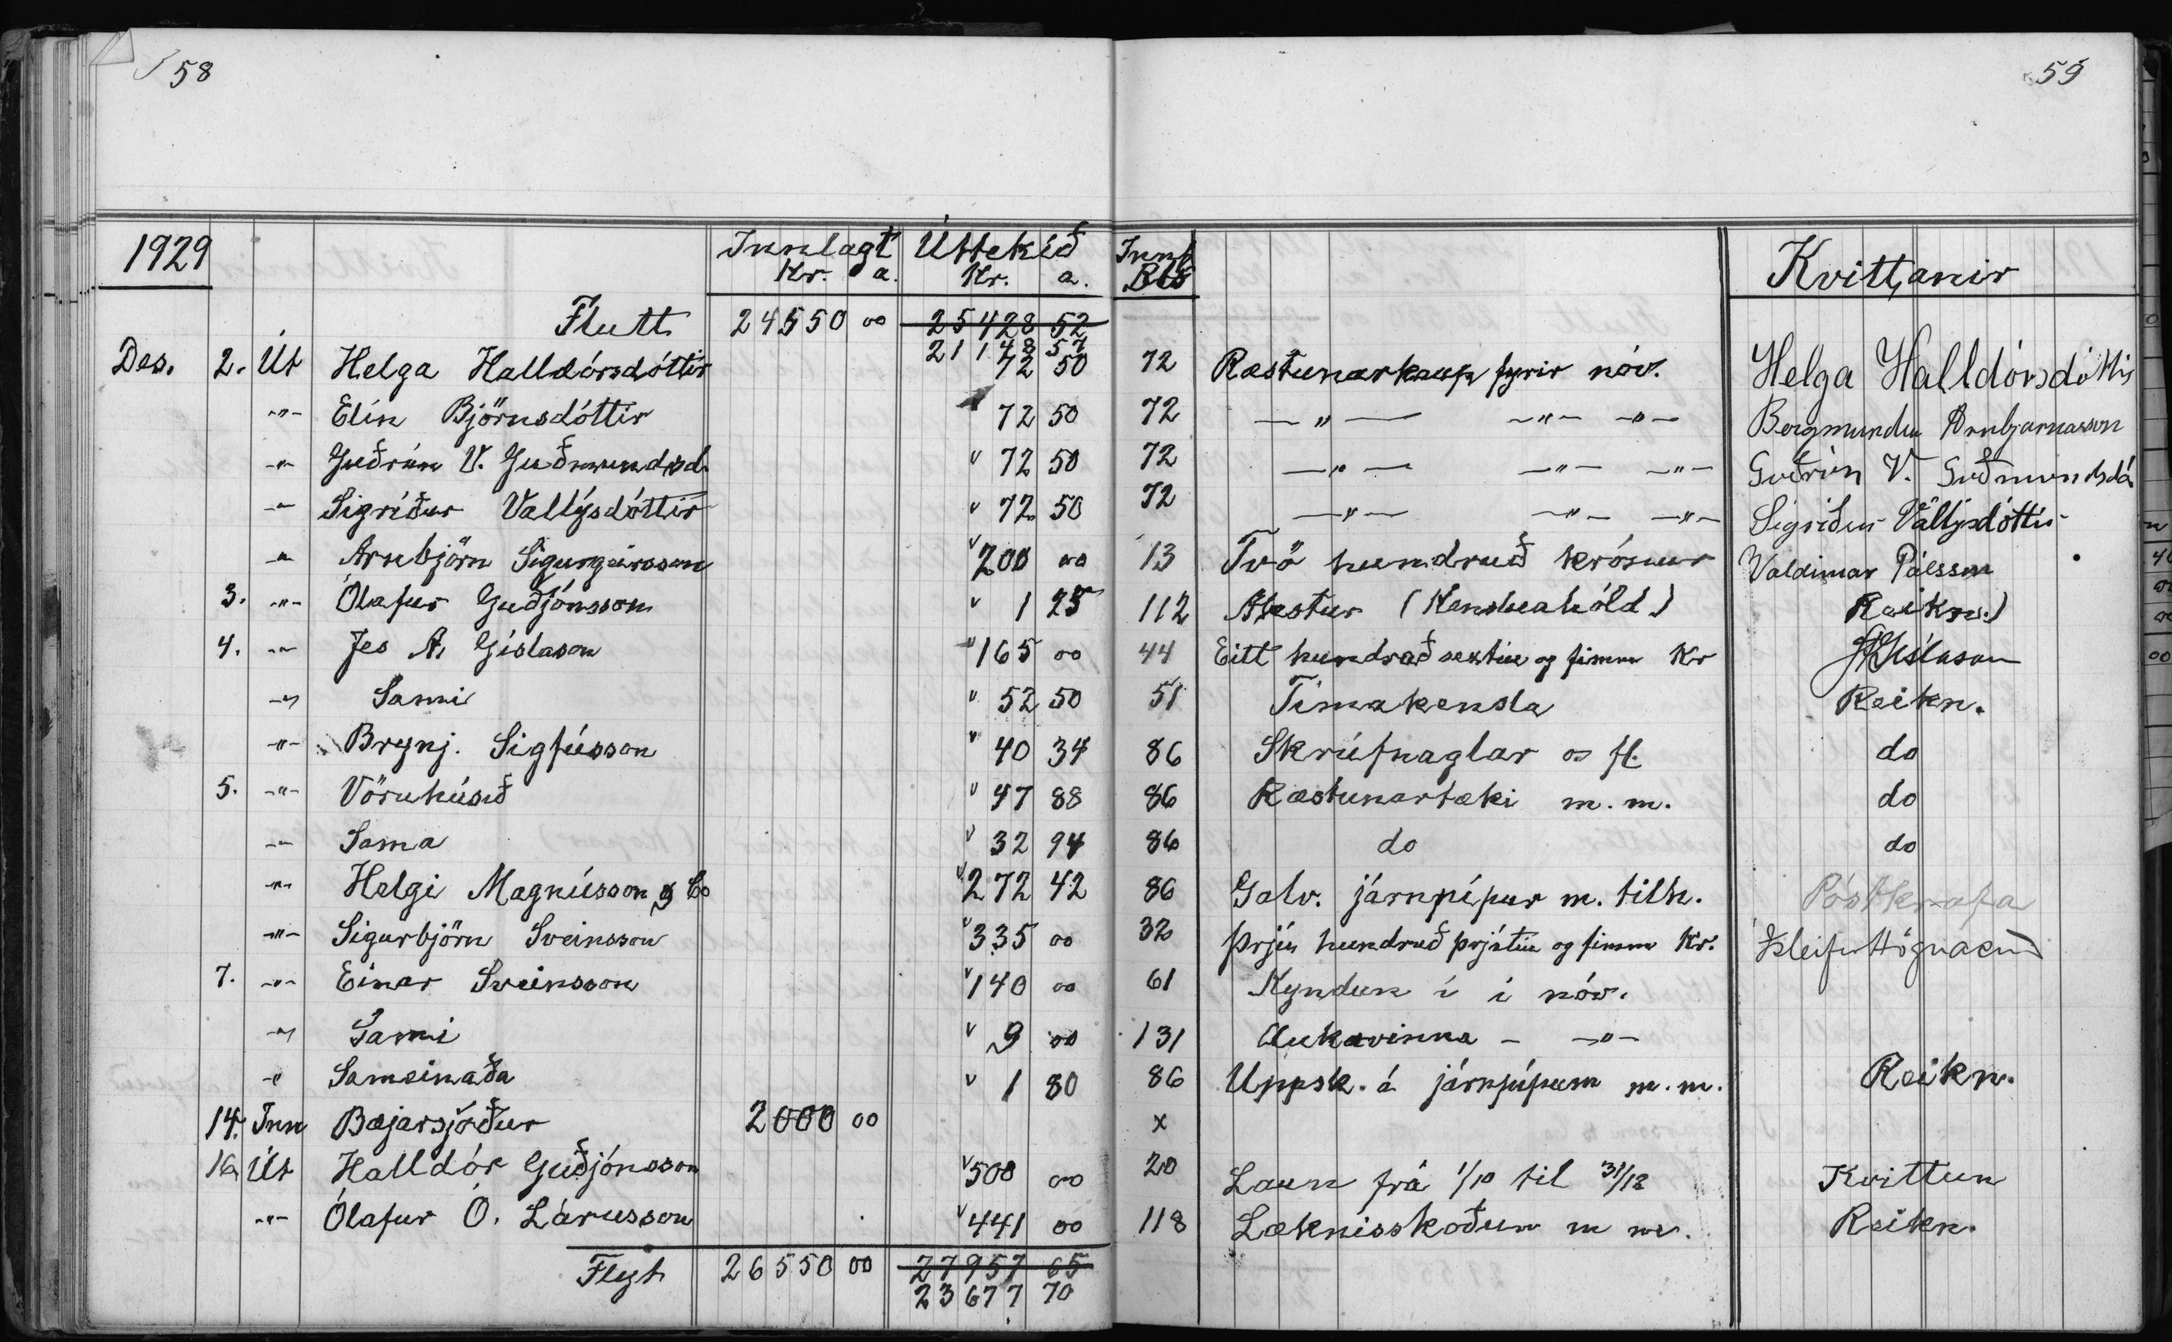 58
59
1929 Innlagt Úttekið Innf Kvittanir
Kr. a. Kr. a. Bls
Flutt 24550 00 25428 52
21148 57
Des. 2. Út Helga Halldórsdóttir 72 50 72 Ræstunarkaup fyrir nóv. Helga Halldórsdóttir
-"- Elín Björnsdóttir 72 50 72 —"— —"— —"— Bergmundur Arnbjarnarson
-"- Guðrún V. Guðmundsd. 72 50 72 —"— —"— —"— Guðrún V. Guðmundsdó
-"- Sigríður Valtýsdóttir 72 50 72 —"— —"— —"— Sigríður Valtýsdóttir
-"- Arnbjörn Sigurgeirsson 200 00 13 Tvö hundruð krónur Valdimar Pálsson
3. -"- Ólafur Guðjónsson 1 25 112 Akstur (Kensluahöld) Reikn.
4. -"- Jes A. Gíslason 165 00 44 Eitt hundrað sextíu og fimm Kr JAGíslason
-"- Sami 52 50 51 Tímakensla Reikn.
-"- Brynj. Sigfússon 40 34 86 Skrúfnaglar o fl. do
5. -"- Vöruhúsið 47 88 86 Ræstunartæki m. m. do
-"- Sama 32 94 86 do do
-"- Helgi Magnússon & Co 272 42 86 Galv. járnpípur m. tilh. Póstkrafa
-"- Sigurbjörn Sveinsson 335 00 32 Þrjú hundruð þrjátíu og fimm Kr. Ísleifur Högnason
7. -"- Einar Sveinsson 140 00 61 Kyndun í í nóv.
-"- Sami 9 00 131 Aukavinna - -"-
-"- Sameinaða 1 80 86 Uppsk. á járnpípum m. m. Reikn.
14. Inn Bæjarsjóður 2000 00 x
16. Út Halldór Guðjónsson 500 00 20 Laun frá 1/10 til 31/12 Kvittun
-"- Ólafur Ó. Lárusson 441 00 118 Læknisskoðun m m. Reikn.
Flyt 26550 00 27957 65
23677 70